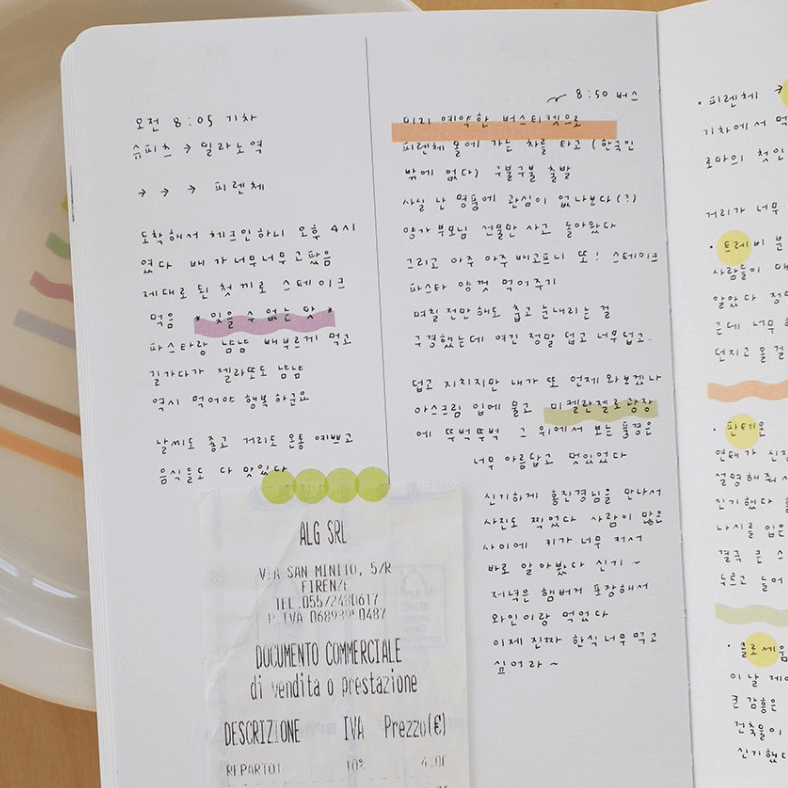 오전 8:05 기차
슈피츠 → 밀라노역
→ → → 피렌체
도착해서 체크인하니 오후 4시
였다 배가 너무너무 고팠음
제대로 된 첫 끼로 스테이크
먹음 * 잊을 수 없는 맛 *
파스타랑 냠냠 배부르게 먹고
길가다가 젤라또도 냠냠
역시 먹어야 행복하군요
날씨도 좋고 거리도 온통 예쁘고
음식들도 다 맛있다
ALG SRL
VIA SAN MINITO, 5/R
FIRENZE
TEL.055/2480617
P.IVA 06898950487
DOCUMENTO COMMERCIALE
di vendita o prestazione
DESCRIZIONE IVA Prezzo(€)
REPARTO1 10% 4,00
8:50 버스
미리 예약한 버스티켓으로
피렌체 몰에 가는 차를 타고 (한국인
밖에 없다) 구불구불 출발
사실 난 명품에 관심이 없나보다(?)
양가 부모님 선물만 사고 돌아왔다
그리고 아주 아주 배고프니 또! 스테이크
파스타 양껏 먹어주기
며칠 전만해도 춥고 눈내리는 걸
구경했는데 여긴 정말 덥고 너무덥고..
덥고 지치지만 내가 또 언제 와보겠나
아스크림 입에 물고 미켈란젤로광장
에 뚜벅뚜벅 그 위에서 보는 풍경은
너무 아름답고 멋있었다
신기하게 홍진경님을 만나서
사진도 찍었다 사람이 많은
사이에 키가 너무 커서
바로 알아봤다 신기 ~
저녁은 햄버거 포장해서
와인이랑 먹었다
이제 진짜 한식너무먹고
싶어라 ~
• 피렌체 →
기차에서 먹
로마의 첫인
거리가 너무
• 트레비 분
사람들이 대
알았다 정말
근데 너무
던지고 올걸
• 판테온
연태가 신
설명해줘서
신기했다
나시를 입은
결국 큰 스
두르고 들어
• 콜로세움
이날 제
큰 감흥은
건축물이
신기했다